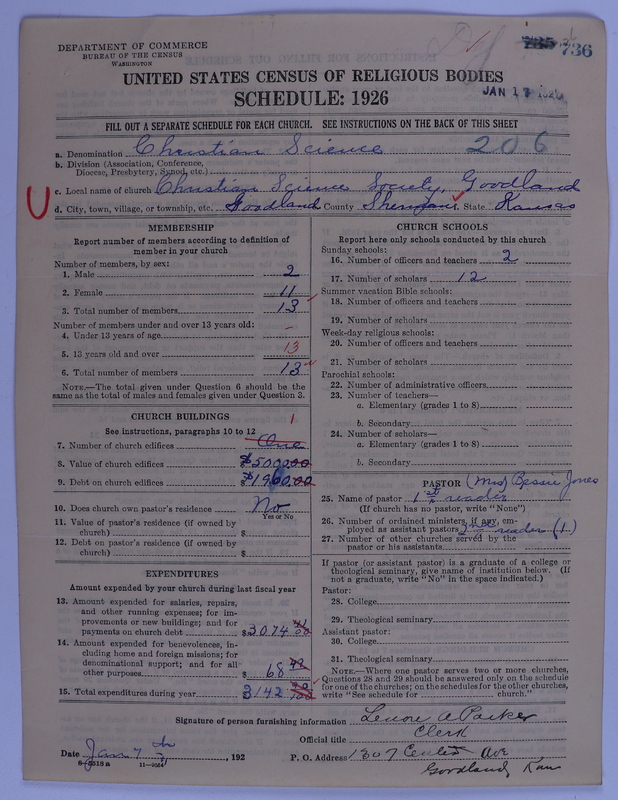 DEPARTMENT OF COMMERCE
BUREAU OF THE CENSUS
WASHINGTON
736
UNITED STATES CENSUS OF RELIGIOUS BODIES
SCHEDULE: 1926
JAN 17 1927
FILL OUT A SEPARATE SCHEDULE FOR EACH CHURCH. SEE INSTRUCTIONS ON THE BACK OF THIS SHEET
a. Denomination Christian Science 206
b. Division (Association, Conference,
Diocese, Presbytery, Synod, etc.)
c. Local name of church Christian Science Society, Goodland
d. City, town, village, or township, etc. Goodland County Sherman State Kansas
MEMBERSHIP
Report number of members according to definition of
member in your church
Number of members, by sex:
1. Male 2
2. Female 11
3. Total number of members 13
Number of members under and over 13 years old:
4. Under 13 years of age –
5. 13 years old and over 13
6. Total number of members 13
NOTE.—The total given under Question 6 should be
same as the total of males and females given under Question 3.
CHURCH BUILDINGS
See instructions, paragraphs 10 to 12
7. Number of church edifices One 1
8. Value of church edifices $5000.00
9. Debt on church edifices $1960.00
10. Does church own pastor's residence No
Yes or No
11. Value of pastor's residence (if owned by
church) $
12. Debt on pastor's residence (if owned by
church) $
EXPENDITURES
Amount expended by your church during last fiscal year
13. Amount expended for salaries, repairs,
and other running expenses; for im-
provements or new buildings; and for
payments on church debt $3074
14. Amount expended for benevolences, in-
cluding home and foreign missions; for
denominational support; and for all
other purposes $68
15. Total expenditures during year 3142
CHURCH SCHOOLS
Report here only schools conducted by this church
Sunday schools:
16. Number of officers and teachers 2
17. Number of scholars 12
Summer vacation Bible schools:
18. Number of officers and teachers
19. Number of scholars
Week-day religious schools:
20. Number of officers and teachers
21. Number of scholars
Parochial schools:
22. Number of administrative officers
23. Number of teachers—
a. Elementary (grades 1 to 8)
b. Secondary
24. Number of scholars—
a. Elementary (grades 1 to 8)
b. Secondary
PASTOR (Mrs) Bessie Jones
25. Name of pastor 1st reader
(If church has no pastor, write "None")
26. Number of ordained ministers, if any, em-
ployed as assistant pastors 2nd reader (1.)
27. Number of other churches served by the
pastor or his assistants
If pastor (or assistant pastor) is a graduate of a college or
theological seminary, give name of institution below. (If
not a graduate, write "No" in the space indicated.)
Pastor:
28. College
29. Theological seminary
Assistant pastor:
30. College
31. Theological seminary
NOTE.—Where one pastor serves two or more churches,
Questions 28 and 29 should be answered only on the schedule
for one of the churches; on the schedules for the other churches,
write "See schedule for church."
Signature of person furnishing information Lenore A Parker
Official title Clerk
Date Jan 7 th, 192
P. O. Address 1307 Center Ave
Goodland, Kan
8-5518a 11-9054